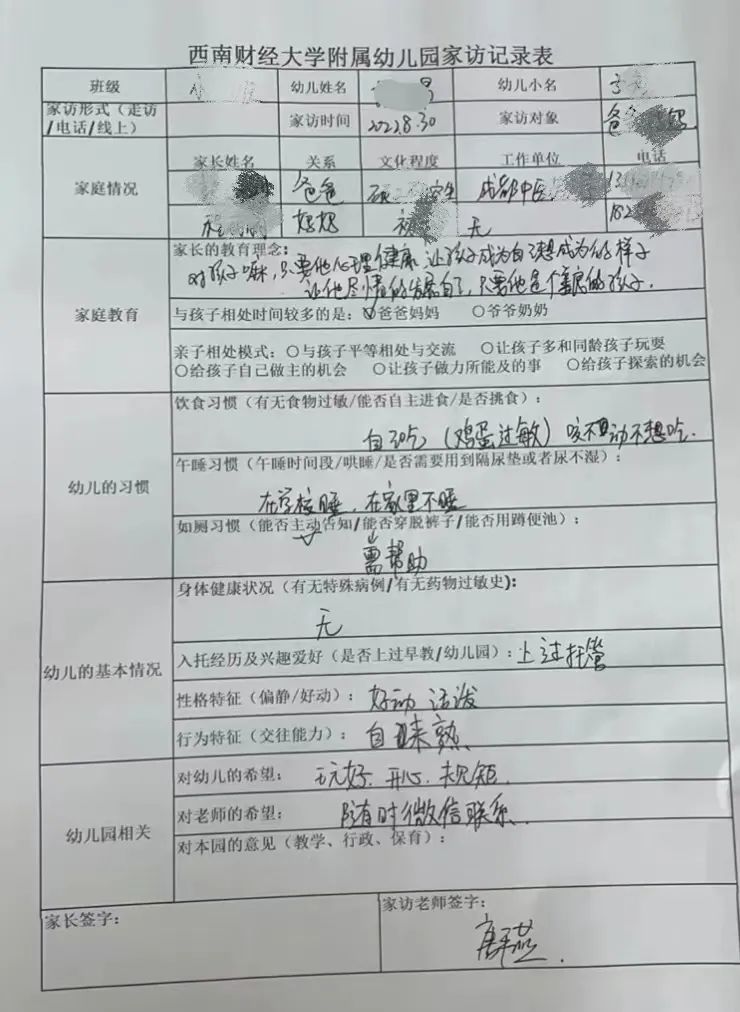 西南财经大学附属幼儿园家访记录表
班级 幼儿姓名 幼儿小名
家访形式（走访/电话/线上） 家访时间 2022.8.30 家访对象 爸
家庭情况
家长姓名 关系 文化程度 工作单位 电话
爸爸 成都中医
妈妈 初 无 182
家庭教育
家长的教育理念：
对孩子嘛，只要他心理健康，让孩子成为自己想成为的样子
让他尽情的发展自己，只要他是个善良的孩子.
与孩子相处时间较多的是：○爸爸妈妈 ○爷爷奶奶
亲子相处模式：○与孩子平等相处与交流 ○让孩子多和同龄孩子玩耍
○给孩子自己做主的机会 ○让孩子做力所能及的事 ○给孩子探索的机会
幼儿的习惯
饮食习惯（有无食物过敏/能否自主进食/是否挑食）：
自己吃（鸡蛋过敏）咬不动不想吃.
午睡习惯（午睡时间段/哄睡/是否需要用到隔尿垫或者尿不湿）：
在学校睡，在家里不睡
如厕习惯（能否主动告知/能否穿脱裤子/能否用蹲便池）：
需帮助
幼儿的基本情况
身体健康状况（有无特殊病例/有无药物过敏史）：
无
入托经历及兴趣爱好（是否上过早教/幼儿园）：上过托管
性格特征（偏静/好动）：好动 活泼
行为特征（交往能力）：自来熟、
幼儿园相关
对幼儿的希望：玩好. 开心. 规矩.
对老师的希望：随时微信联系.
对本园的意见（教学、行政、保育）：
家长签字： 家访老师签字：